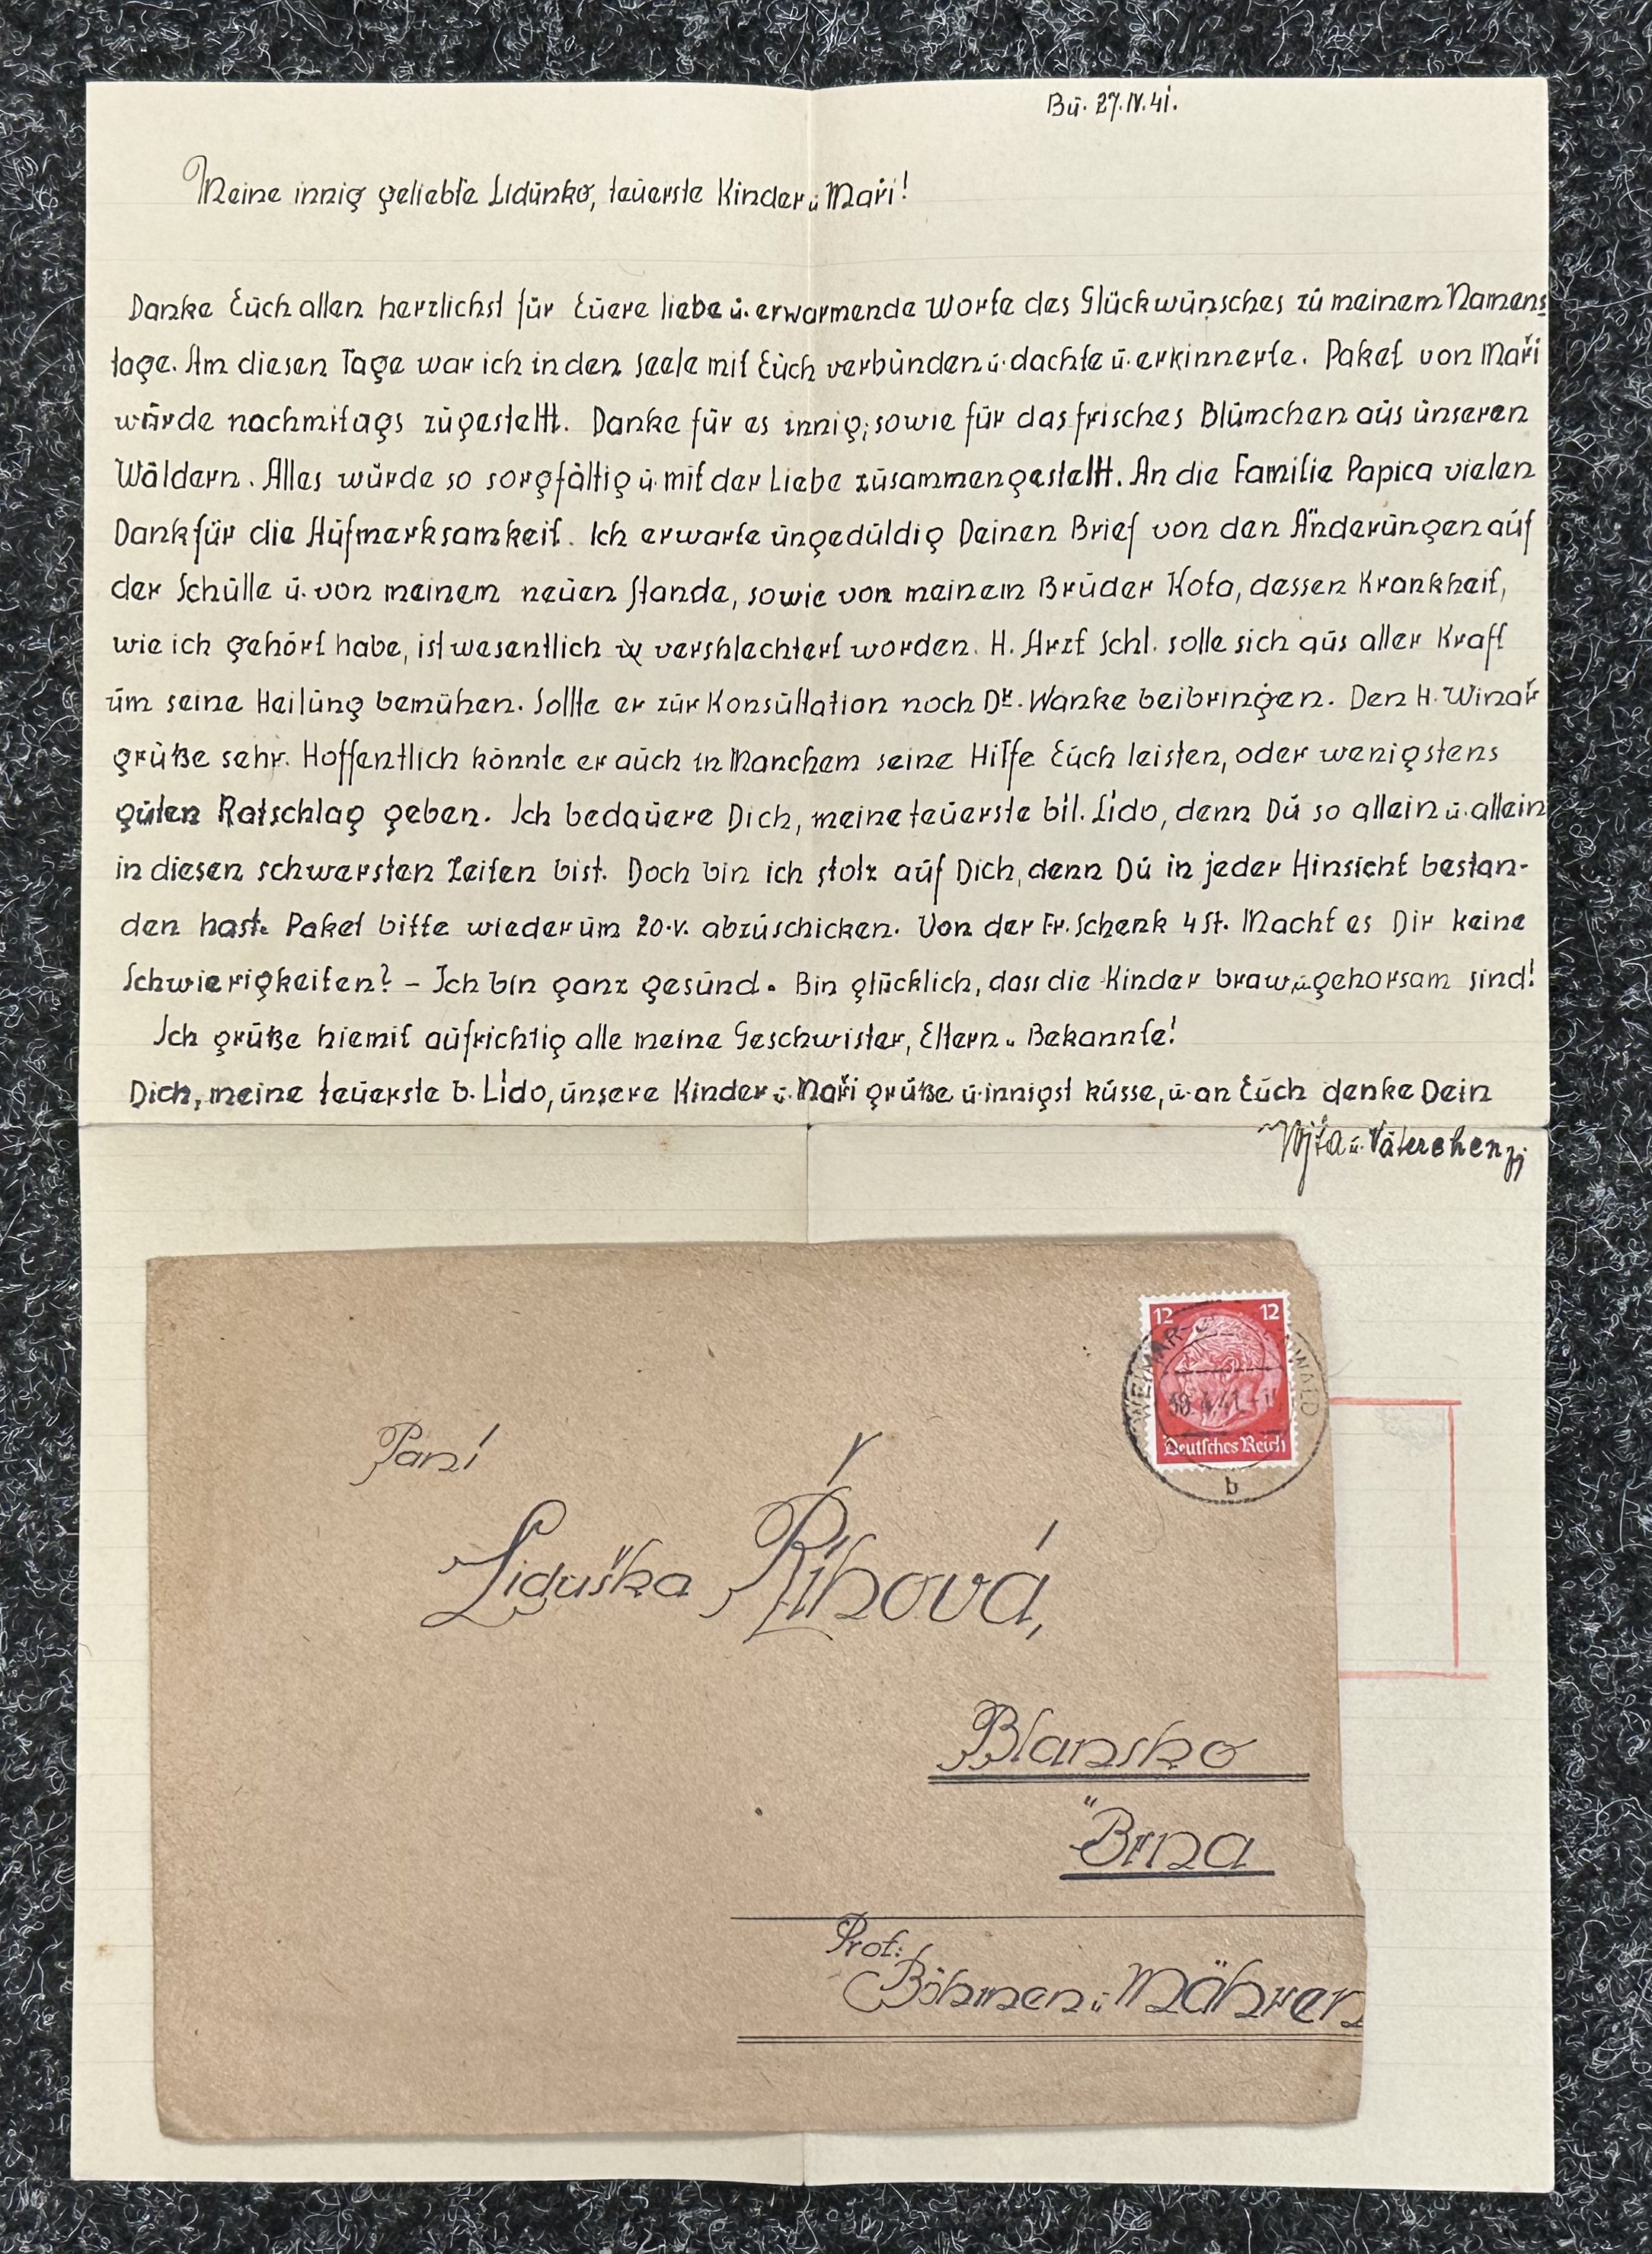 Bu. 27.IV.41.
Meine innig geliebte Lidunko, teuerste Kinder u. Maři!
Danke Euch allen herzlichst für Euere liebe u. erwarmende Worte des Glückwunsches zu meinem Namens
tage. Am diesen Tage war ich in den Seele mit Euch verbunden u. dachte u. erkinnerte. Paket von Maři
wurde nachmitags zugestellt. Danke für es innig, sowie für das frisches Blümchen aus unseren
Wäldern. Alles wurde so sorgfältig u. mit der Liebe zusammengestellt. An die Familie Papica vielen
Dank für die Aufmerksamkeit. Ich erwarte ungeduldig Deinen Brief von den Änderungen auf
der Schulle u. von meinem neuen Stande, sowie von meinem Bruder Kota, dessen Krankheit,
wie ich gehört habe, ist wesentlich vershlechtert worden. H. Arzt Schl. solle sich aus aller Kraft
um seine Heilung bemühen. Sollte er zur Konsultation noch Dr. Wanke beibringen. Den H. Winař
grüße sehr. Hoffentlich könnte er auch in Manchem seine Hilfe Euch leisten, oder wenigstens
guten Ratschlag geben. Ich bedauere Dich, meine teuerste bil. Lído, denn Du so allein u. allein
in diesen schwersten Zeiten bist. Doch bin ich stolz auf Dich, denn Du in jeder Hinsicht bestan-
den hast. Paket bitte wieder um 20.V. abzuschicken. Von der Fr. Schenk 4 St. Macht es Dir keine
Schwierigkeiten? – Ich bin ganz gesund. Bin glücklich, dass die Kinder braw u. gehorsam sind!
Ich grüße hiemit aufrichtig alle meine Geschwister, Eltern u. Bekannte!
Dich, meine teuerste b. Lído, unsere Kinder u. Maři grüße u. innigst küsse, u. an Euch denke Dein
Vojta u. Väterchen
12 12
Deutsches Reich
WEIMAR-B WALD
4.41
b
Paní
Liduška Říhová,
Blansko
"Brna
Prot.
Böhmen u. Mähren